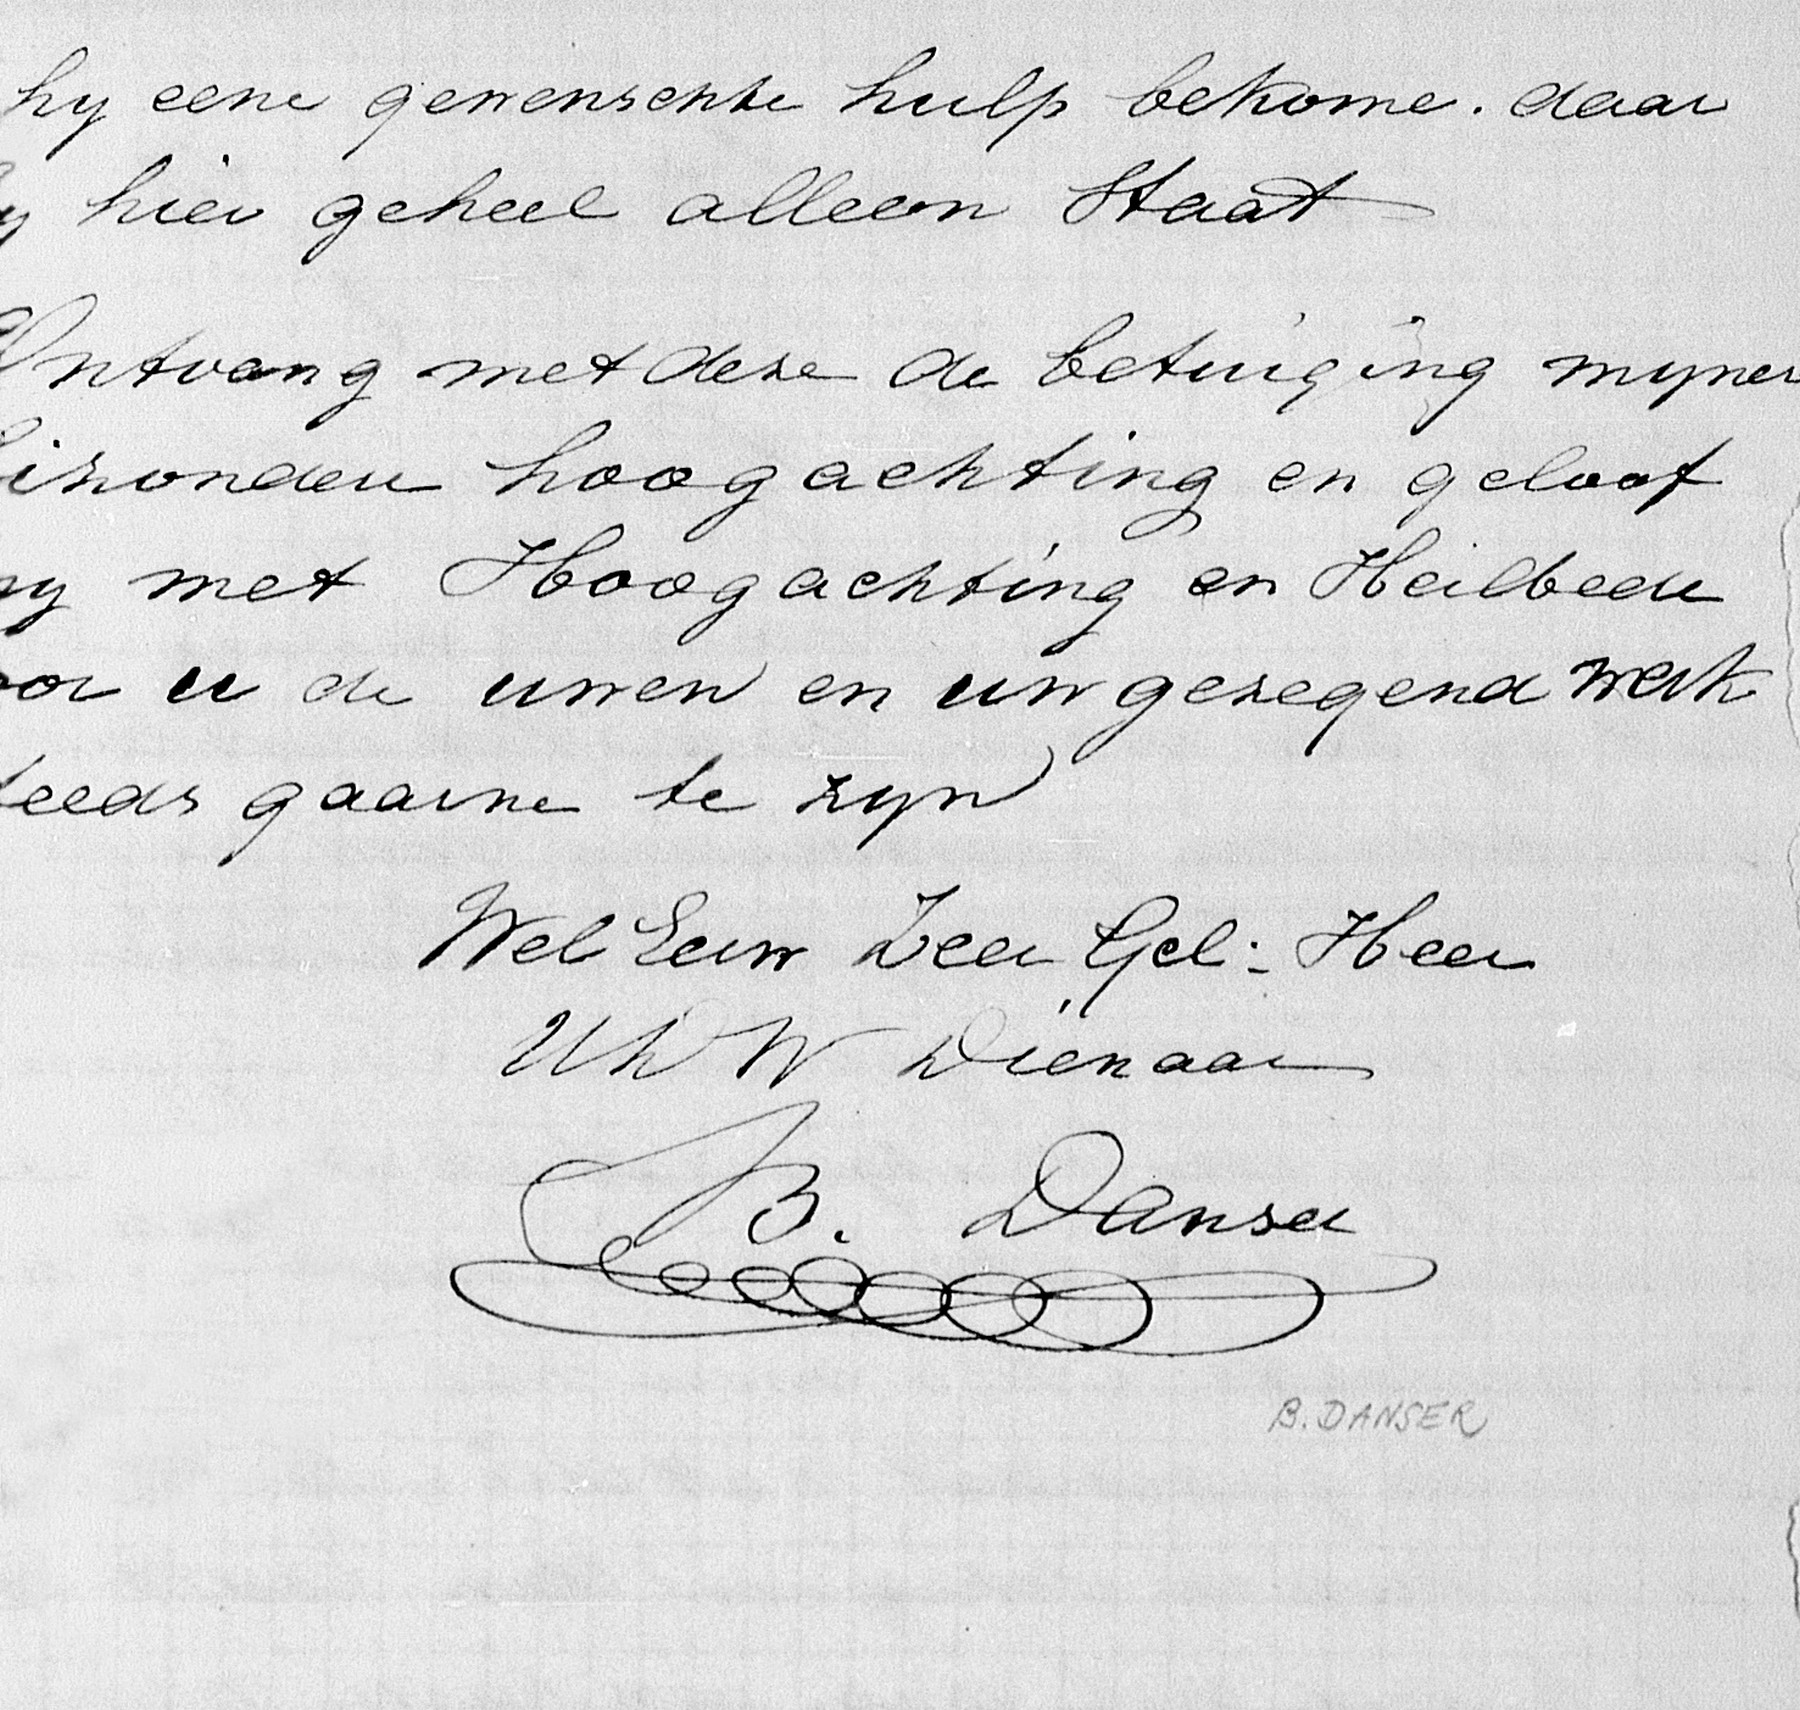 hy eene gewenschte hulp bekome. daar
hy hier geheel alleen Staat
Ontvang met deze de betuiging myner
bizonder hoogachting en geloof
my met Hoogachting en Heilbede
voor u de uwen en uw gezegend werk
steeds gaarne te zyn
Wel Eerw Zeer Gel: Heer
UWDW Dienaar
B. Danser
B. DANSER